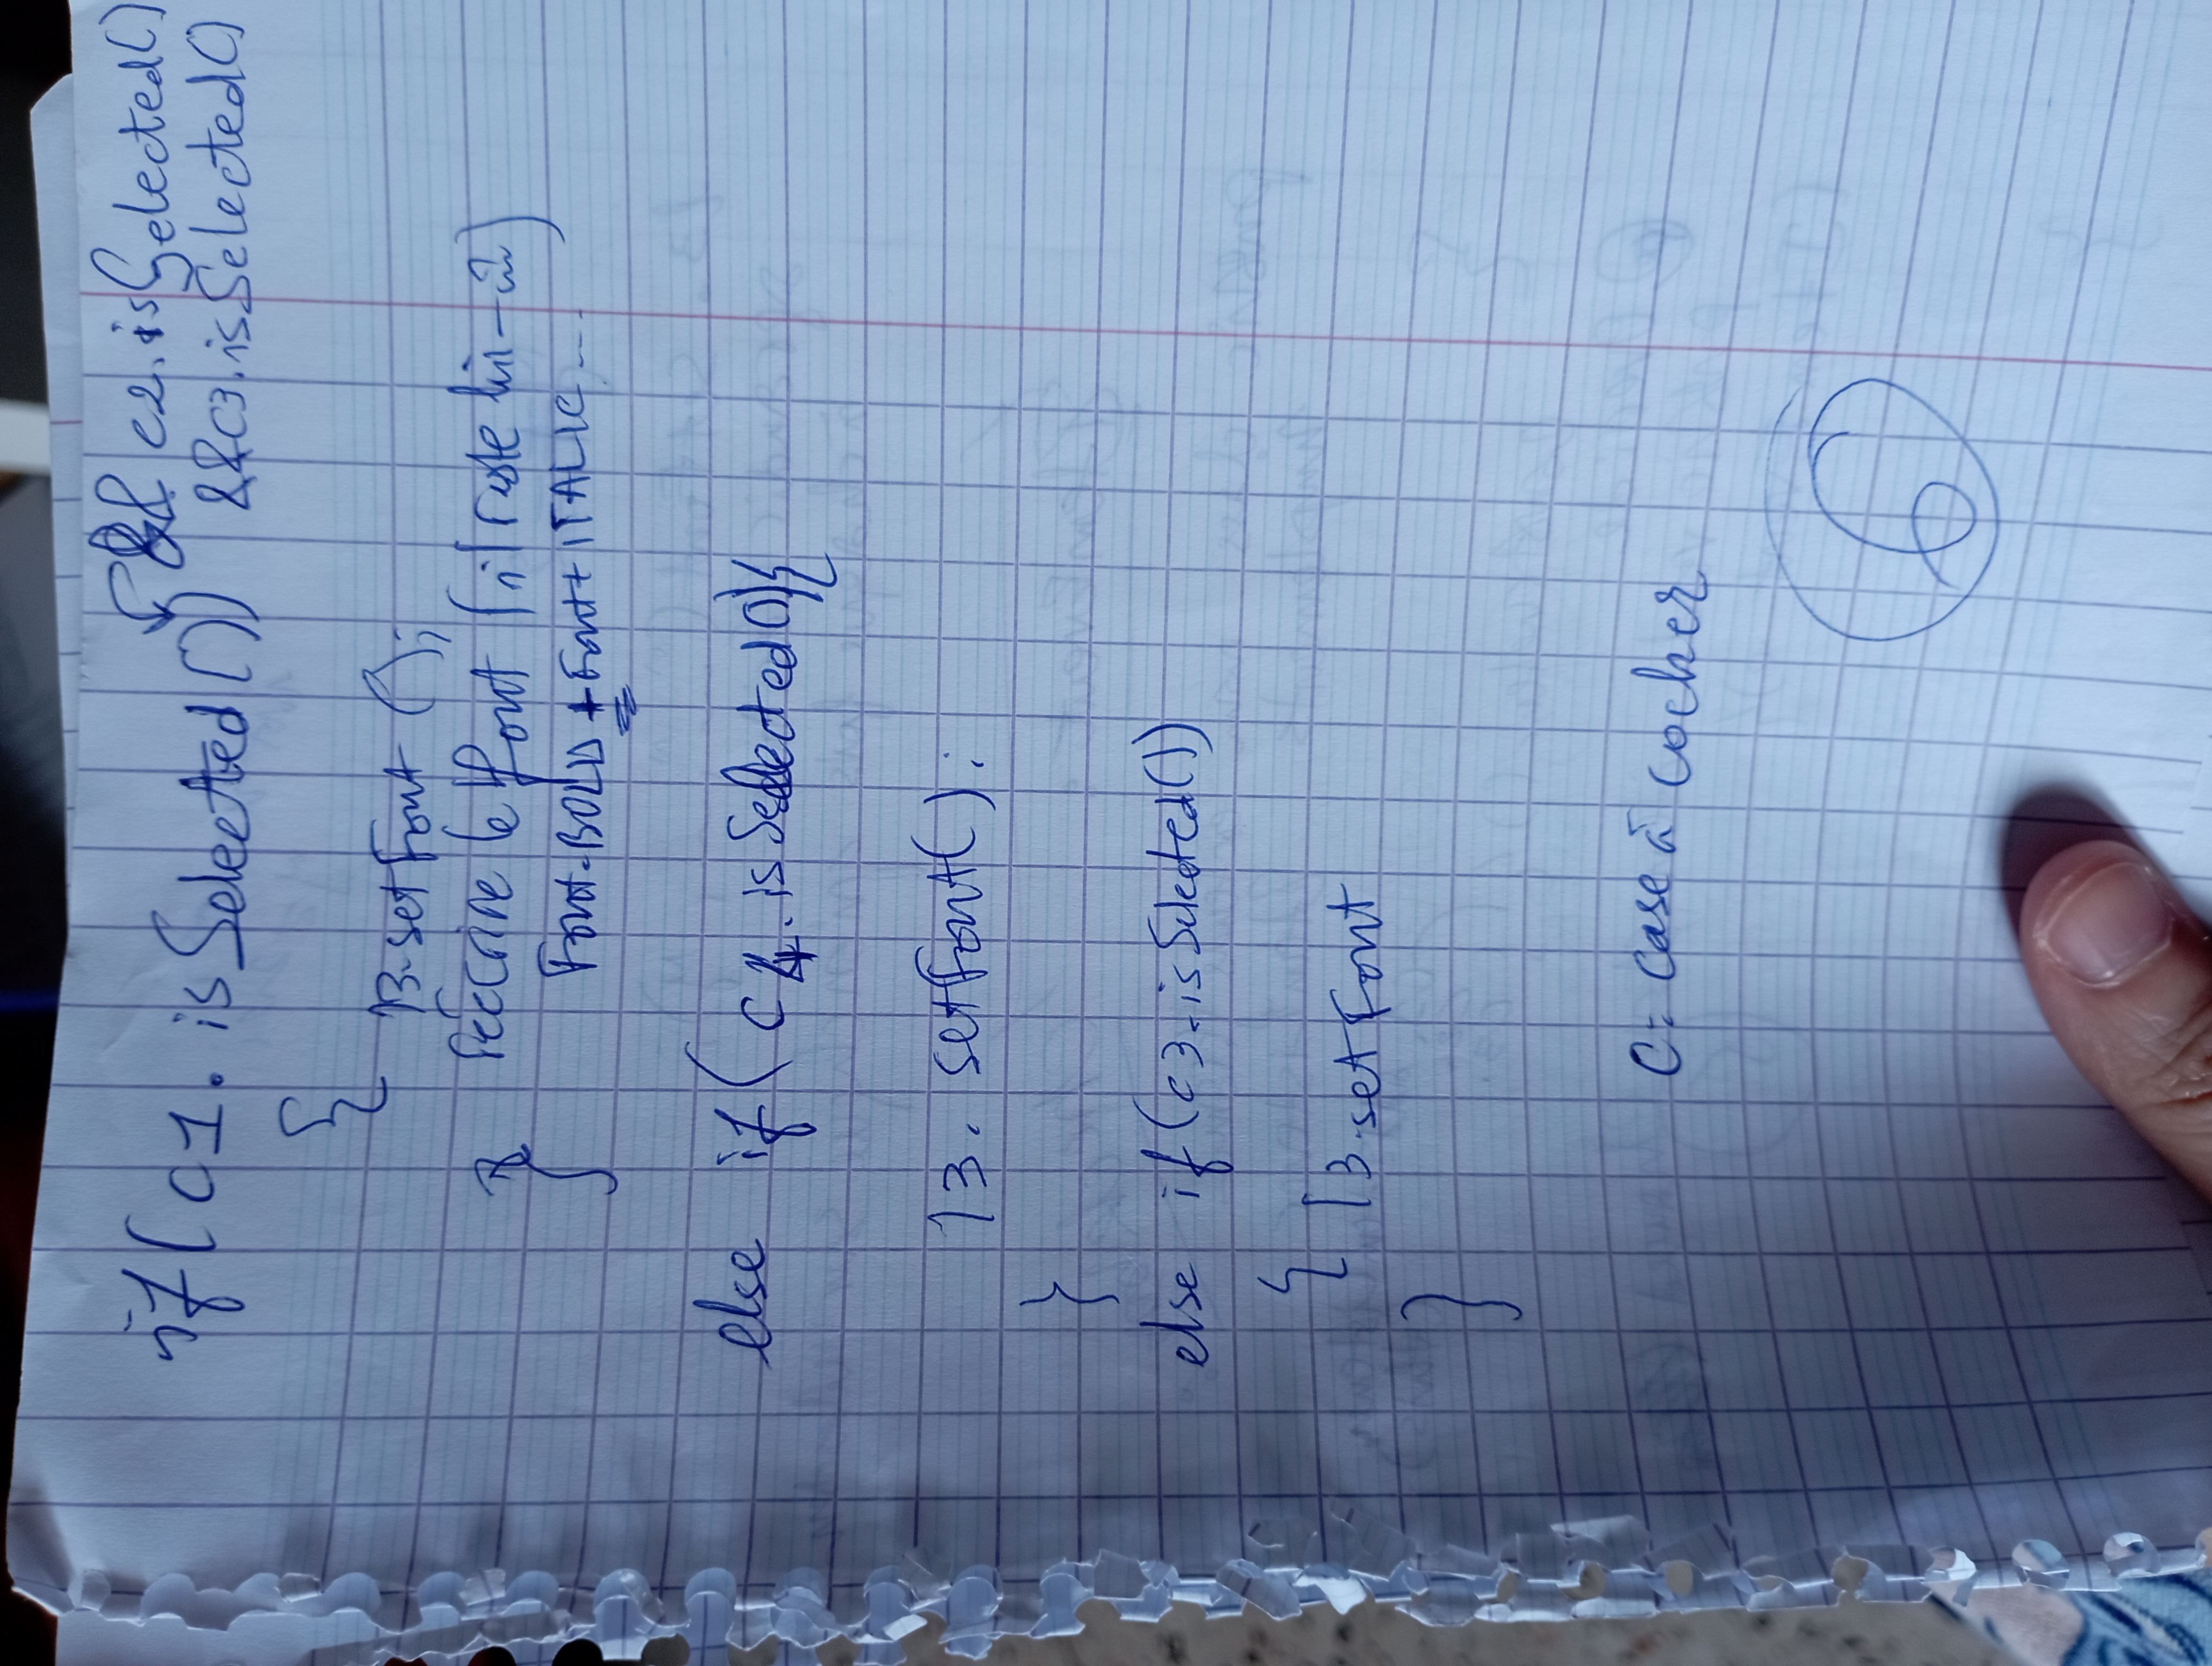 if(c1.isSelected()) && c2.isSelected()
&&c3.isSelected()
{
l3.setFont();
réécrire le font (il reste lui-m̂)
} Font.BOLD + Font+ITALIC...
else if(c4.isSelected()){
l3.setFont();
}
else if(c3.isSelected())
{ l3.setFont
}
C: case à cocher